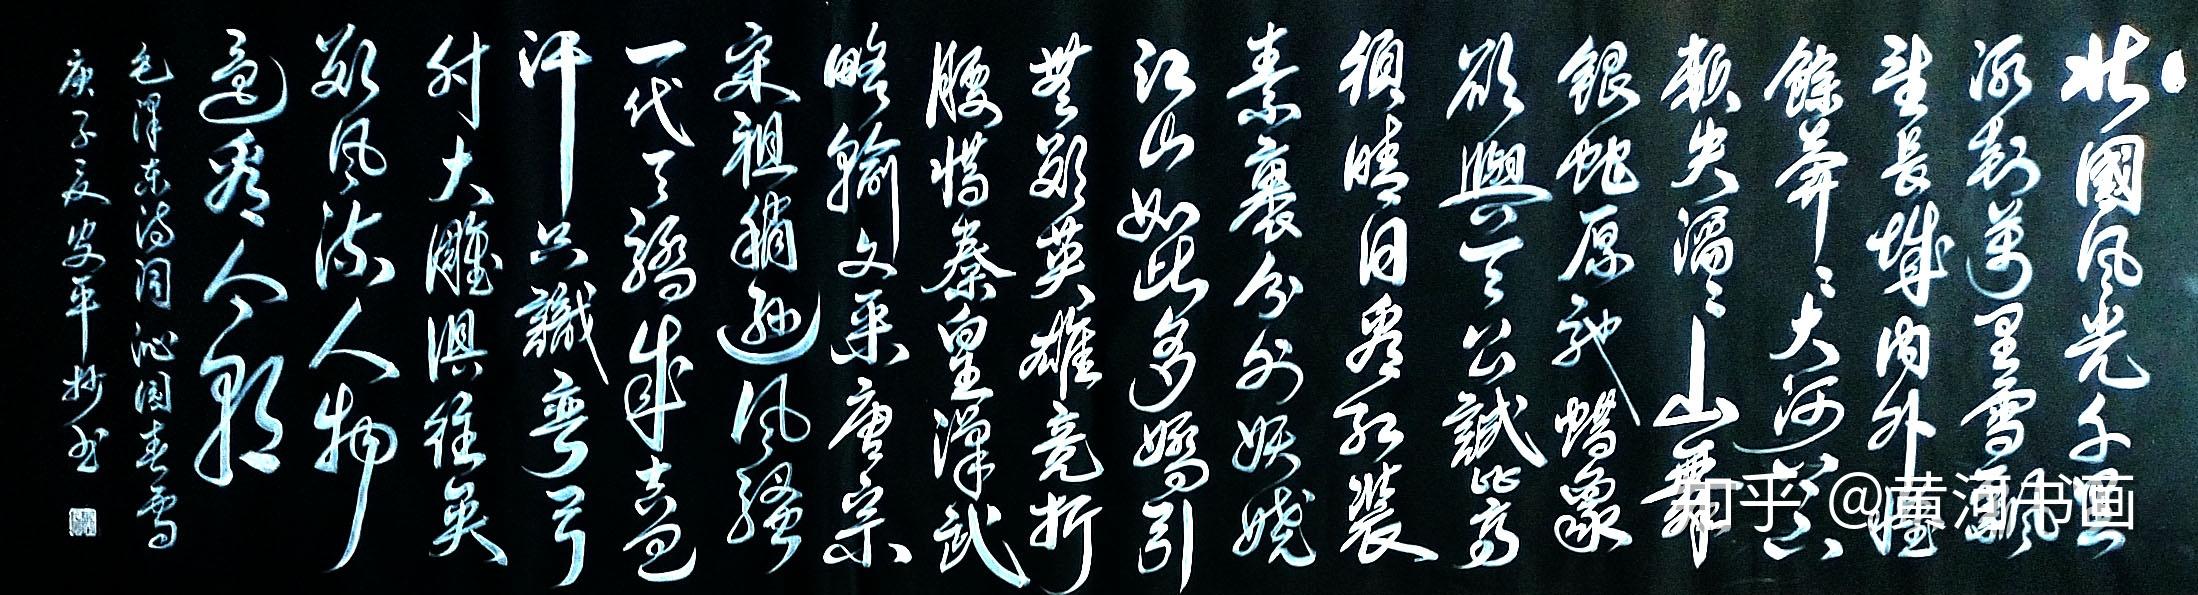 北國风光千里
冰封萬里雪飄
望長城内外惟
餘莽〻大河上下
頓失滔〻山舞
銀蛇原馳蠟象
欲與天公試比高
須晴日看红装
素裹分外妖嬈
江山如此多嬌引
無數英雄竞折
腰惜秦皇漢武
略輸文采唐宗
宋祖稍遜风騷
一代天驕成吉思
汗只識彎弓
射大雕俱往矣
數风流人物
還看今朝
毛澤东诗词沁園春雪
庚子夏安平抄书
知乎 @黄河书画